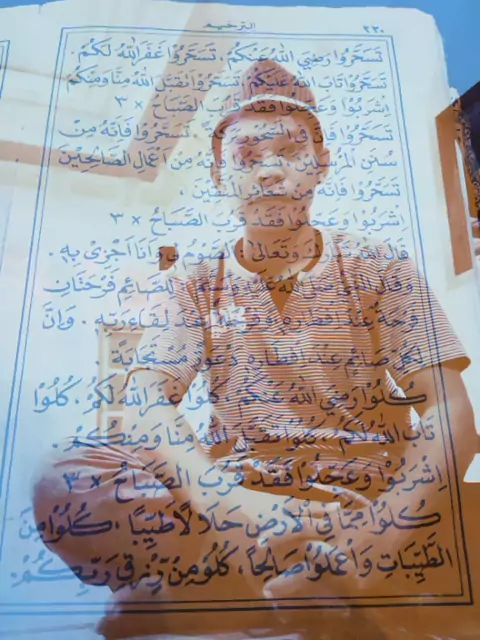 ٢٣٠
الترحيم
تَسَحَّرُوْا رَضِيَ اللهُ عَنْكُمْ . تَسَحَّرُوْا غَفَرَ اللهُ لَكُمْ .
تَسَحَّرُوْا تَابَ اللهُ عَلَيْكُمْ . تَسَحَّرُوْا تَقَبَّلَ اللهُ مِنَّا وَمِنْكُمْ
اِشْرَبُوْا وَعَجِّلُوْا فَقَدْ قَرُبَ الصَّبَاحُ × ٣
تَسَحَّرُوْا فَاِنَّ فِى السَّحُوْرِ بَرَكَةً . تَسَحَّرُوْا فَاِنَّهُ مِنْ
سُنَنِ الْمُرْسَلِيْنَ . تَسَحَّرُوْا فَاِنَّهُ مِنْ اَعْمَالِ الصَّالِحِيْنَ
تَسَحَّرُوْا فَاِنَّهُ مِنْ شَعَائِرِ الْمُتَّقِيْنَ .
اِشْرَبُوْا وَعَجِّلُوْا فَقَدْ قَرُبَ الصَّبَاحُ × ٣
قَالَ اللهُ تَبَارَكَ وَتَعَالَى : اَلصَّوْمُ لِى وَاَنَا اَجْزِىْ بِهِ .
وَقَالَ النَّبِيُّ صَلَّى اللهُ عَلَيْهِ وَسَلَّمَ : لِلصَّائِمِ فَرْحَتَانِ
فَرْحَةٌ عِنْدَ اِفْطَارِهِ وَفَرْحَةٌ عِنْدَ لِقَاءِ رَبِّهِ . وَاِنَّ
لِكُلِّ صَائِمٍ عِنْدَ اِفْطَارِهِ دَعْوَةً مُسْتَجَابَةً .
كُلُوْا رَضِيَ اللهُ عَنْكُمْ . كُلُوْا غَفَرَ اللهُ لَكُمْ . كُلُوْا
تَابَ اللهُ لَكُمْ . كُلُوْا تَقَبَّلَ اللهُ مِنَّا وَمِنْكُمْ .
اِشْرَبُوْا وَعَجِّلُوْا فَقَدْ قَرُبَ الصَّبَاحُ × ٣
كُلُوْا مِمَّا فِى الْاَرْضِ حَلَالًا طَيِّبًا . كُلُوْا مِنَ
الطَّيِّبَاتِ وَاعْمَلُوْا صَالِحًا . كُلُوْ مِنْ رِّزْقِ رَبِّكُمْ .